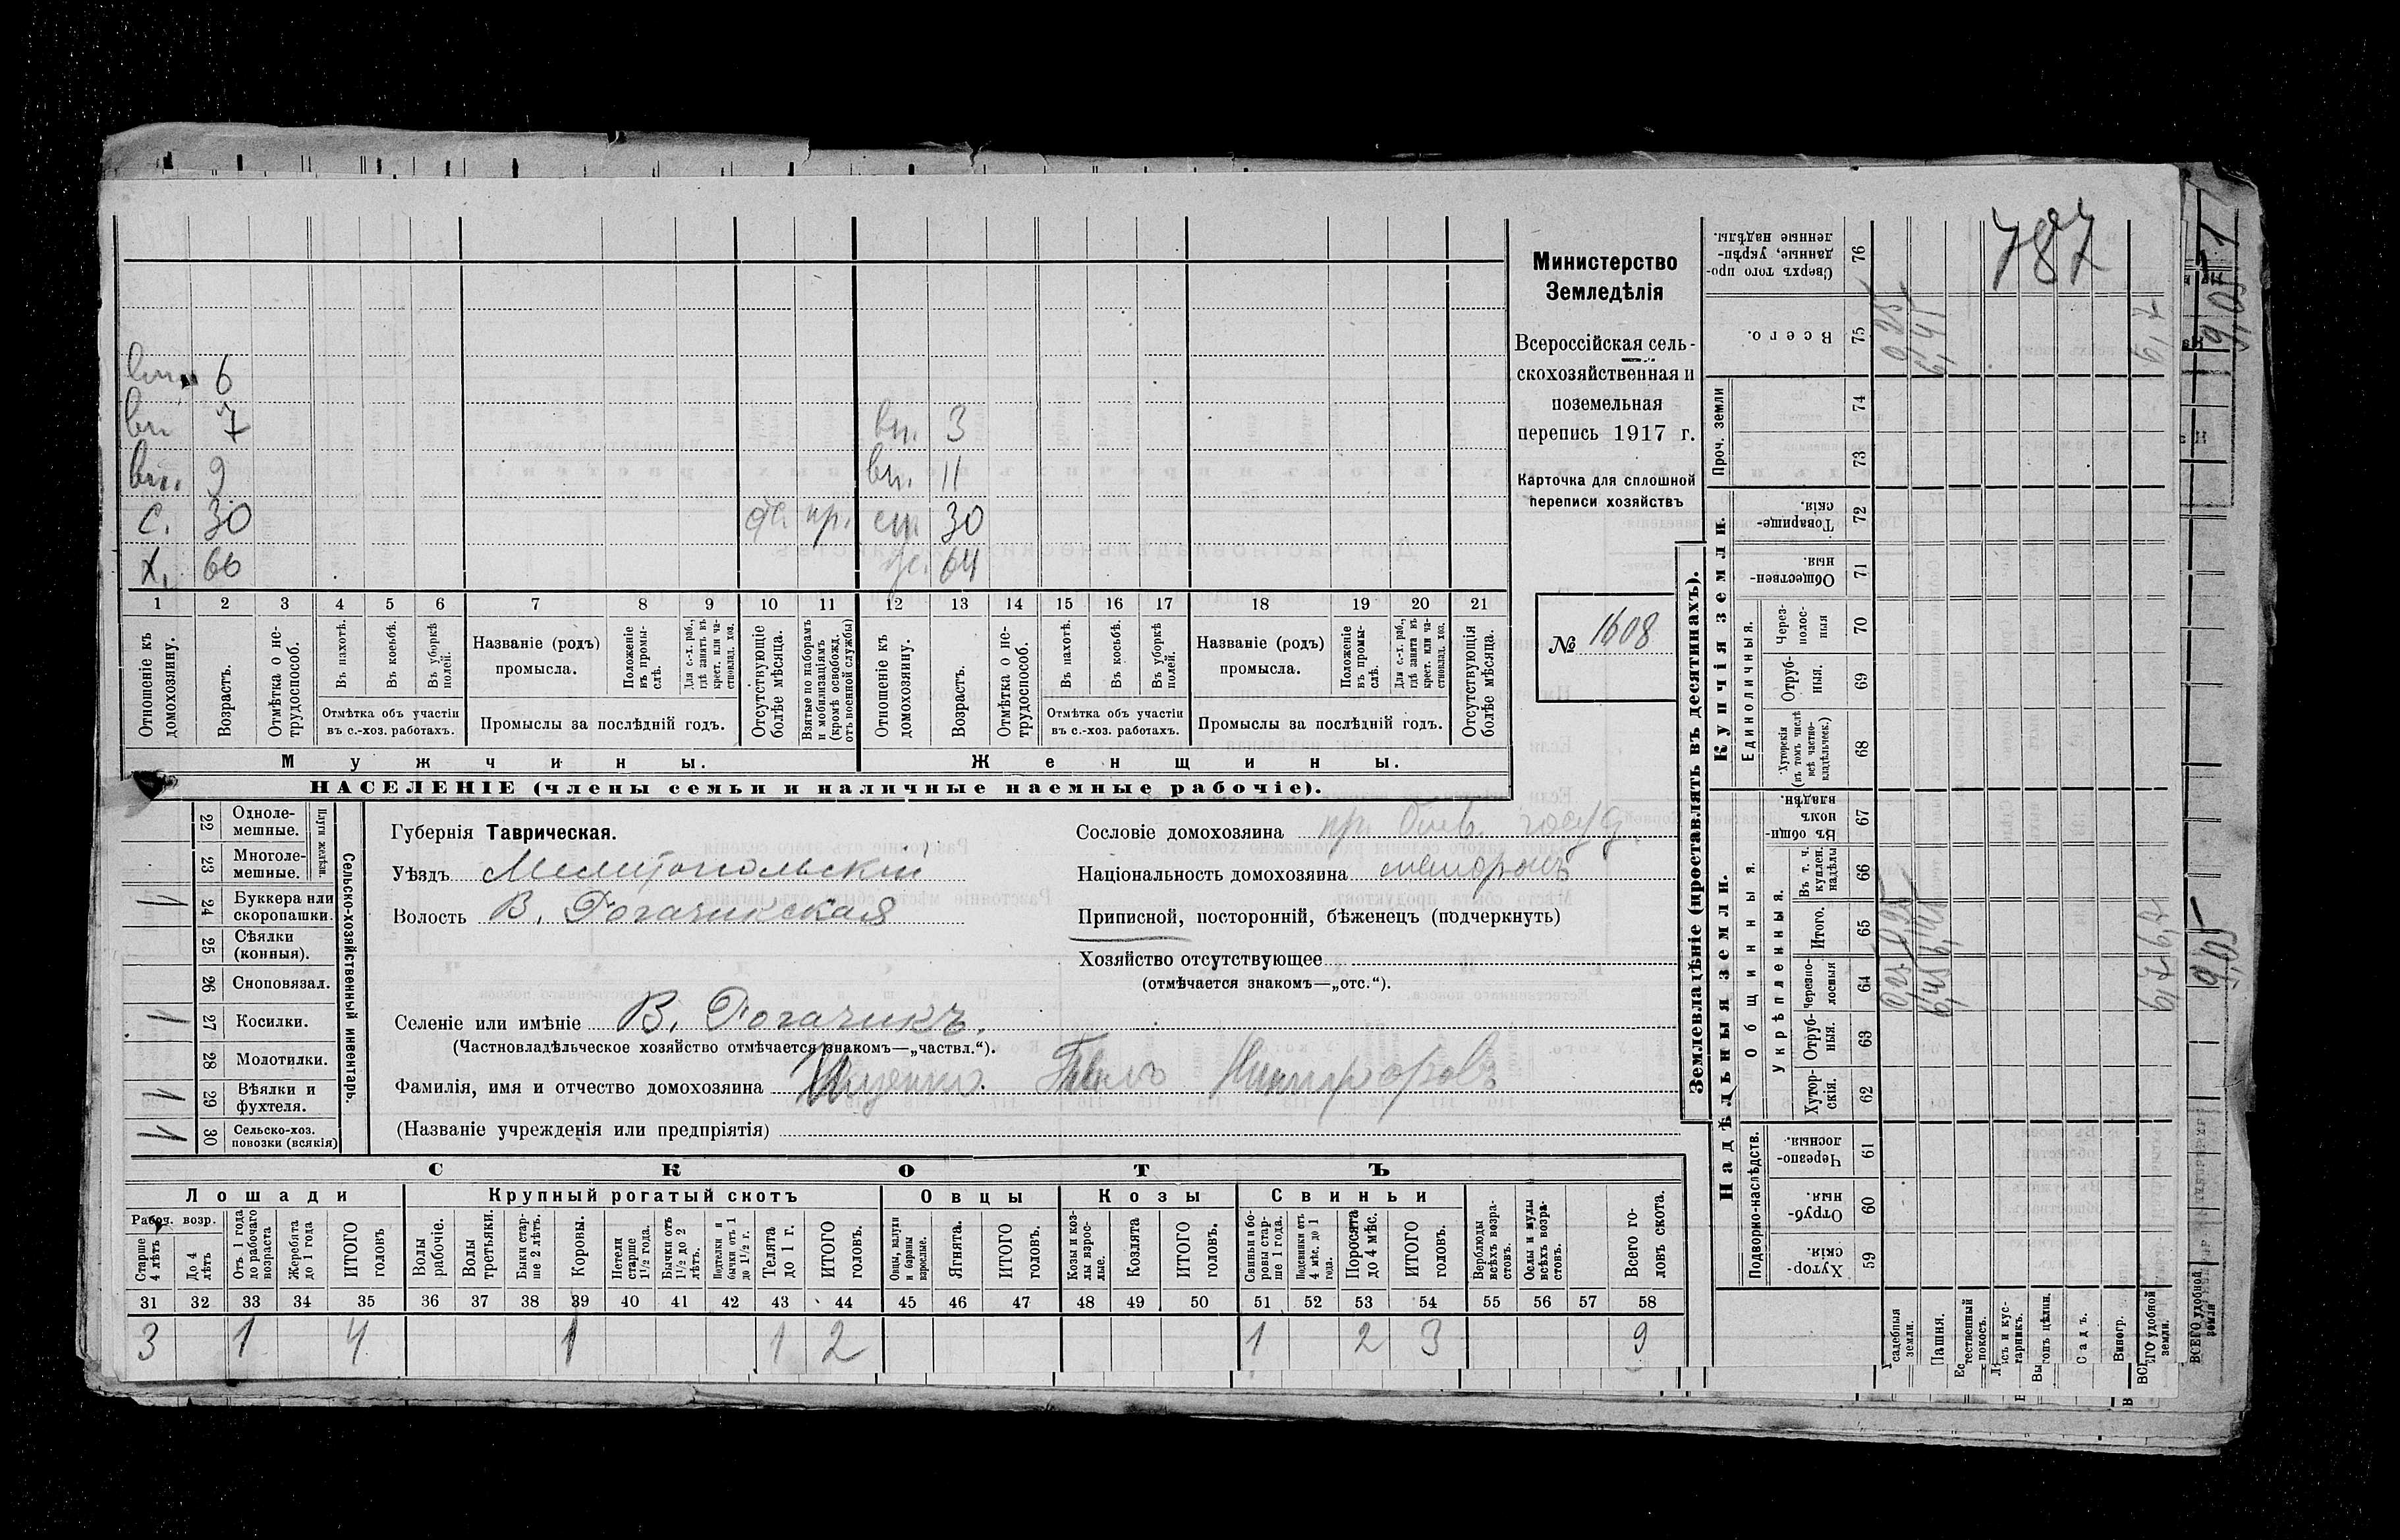 787
Министерство
Земледѣлія
Всероссійская сель-
скохозяйственная и
поземельная
перепись 1917 г.
Карточка для сплошной
переписи хозяйствъ
№ 1608
вн. 6
вн 7 вн. 3
вн. 9 вн. 11
с. 30 пр. 30
х. 66 64
1 2 3 4 5 6 7 8 9 10 11 12 13 14 15 16 17 18 19 20 21
Отношеніе къ домохозяину.
Возрастъ.
Отмѣтка о не-трудоспособ.
Въ пахотѣ.
Въ косьбѣ.
Въ уборкѣ полей.
Отмѣтка объ участіи
въ с.-хоз. работахъ.
Названіе (родъ)
промысла.
Положеніе въ промы-слѣ.
Для с.-х. раб., гдѣ занятъ въ крест. или ча-ствовлад. хоз.
Промыслы за послѣдній годъ.
Отсутствующіе болѣе мѣсяца.
Взятые по наборамъ и мобилизаціямъ (кромѣ освобожд. отъ военной службы)
Отношеніе къ домохозяину.
Возрастъ.
Отмѣтка о не-трудоспособ.
Въ пахотѣ.
Въ косьбѣ.
Въ уборкѣ полей.
Отмѣтка объ участіи
въ с.-хоз. работахъ.
Названіе (родъ)
промысла.
Положеніе въ промы-слѣ.
Для с.-х. раб., гдѣ занята въ крест. или ча-ствовлад. хоз.
Промыслы за послѣдній годъ.
Отсутствующія болѣе мѣсяца.
Мужчины. Женщины.
НАСЕЛЕНІЕ (члены семьи и наличные наемные рабочіе).
Сельско-хозяйственный инвентарь.
Плуги желѣзн
22 Одноле-мешные.
23 Многоле-мешные.
1 24 Буккера или скоропашки.
25 Сѣялки (конныя).
26 Сноповязал.
1 27 Косилки.
28 Молотилки.
1 29 Вѣялки и фухтеля.
1 30 Сельско-хоз. повозки (всякія)
Губернія Таврическая.
Уѣздъ Мелитопольскій
Волость В. Рогачикская
Сословіе домохозяина пр. быв. госуд.
Національность домохозяина
Приписной, посторонній, бѣженецъ (подчеркнуть)
Хозяйство отсутствующее
(отмѣчается знакомъ—„отс.“).
Селеніе или имѣніе В. Рогачикъ.
(Частновладѣльческое хозяйство отмѣчается знакомъ—„частвл.“).
Фамилія, имя и отчество домохозяина Никифоровъ
(Названіе учрежденія или предпріятія)
СКОТЪ
Лошади Крупный рогатый скотъ Овцы Козы Свиньи
Рабоч. возр.
Старше 4 лѣтъ
До 4 лѣтъ
Отъ 1 года до рабочаго возраста
Жеребята до 1 года
ИТОГО головъ
Волы рабочіе.
Волы третьяки.
Быки стар-ше 2 лѣтъ.
Коровы.
Нетели старше 1½ года.
Бычки отъ 1½ до 2 лѣтъ.
Подтелки и бычки отъ 1 до 1½ г.
Телята до 1 г.
ИТОГО головъ.
Овцы, валухи и бараны взрослые.
Ягнята.
ИТОГО головъ.
Козы и коз-лы взрос-лые.
Козлята
ИТОГО головъ.
Свиньи и бо-ровы стар-ше 1 года.
Подсвинки отъ 4 мѣс. до 1 года.
Поросята до 4 мѣс.
ИТОГО головъ.
Верблюды всѣхъ возра-стовъ.
Ослы и мулы всѣхъ возра-стовъ.
Всего го-ловъ скота.
31 32 33 34 35 36 37 38 39 40 41 42 43 44 45 46 47 48 49 50 51 52 53 54 55 56 57 58
3 1 4 1 1 2 1 2 3 9
Землевладѣніе (проставлять въ десятинахъ).
Надѣльныя земли. Купчія земли.
Подворно-наслѣдств.
Общинныя.
Укрѣпленныя.
Единоличныя.
Проч. земли
59 Хутор-скія.
60 Отруб-ныя.
61 Черезпо-лосныя.
62 Хутор-скія.
63 Отруб-ныя.
64 Черезпо-лосныя
65 Итого.
66 Въ т. ч. куплен. надѣлы
67 Въ общи-номъ владѣн.
68 Хуторскія (въ томъ числѣ всѣ частно-владѣльческ.)
69 Отруб-ныя.
70 Через-полос-ныя
71 Обществен-ныя.
72 Товарище-скія.
73
74
75 Всего.
76 Сверхъ того про-данные, укрѣп-ленные надѣлы.
Усадебныя земли.
Пашня.
Естественный покосъ.
Садъ.
Виногр.
ВСЕГО удобной земли.
ВСЕГО удобной земли